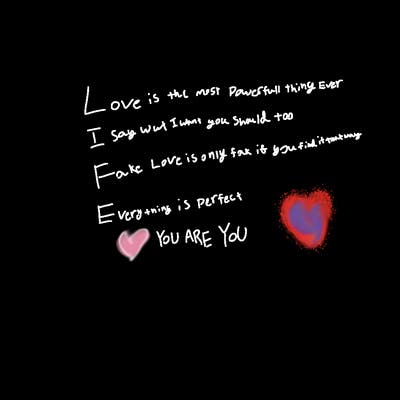 Love is the most Powerfull thing Ever
I say wut I want you should too
Fake Love is only fak if you find it that way
Everything is perfect
YOU ARE YOU